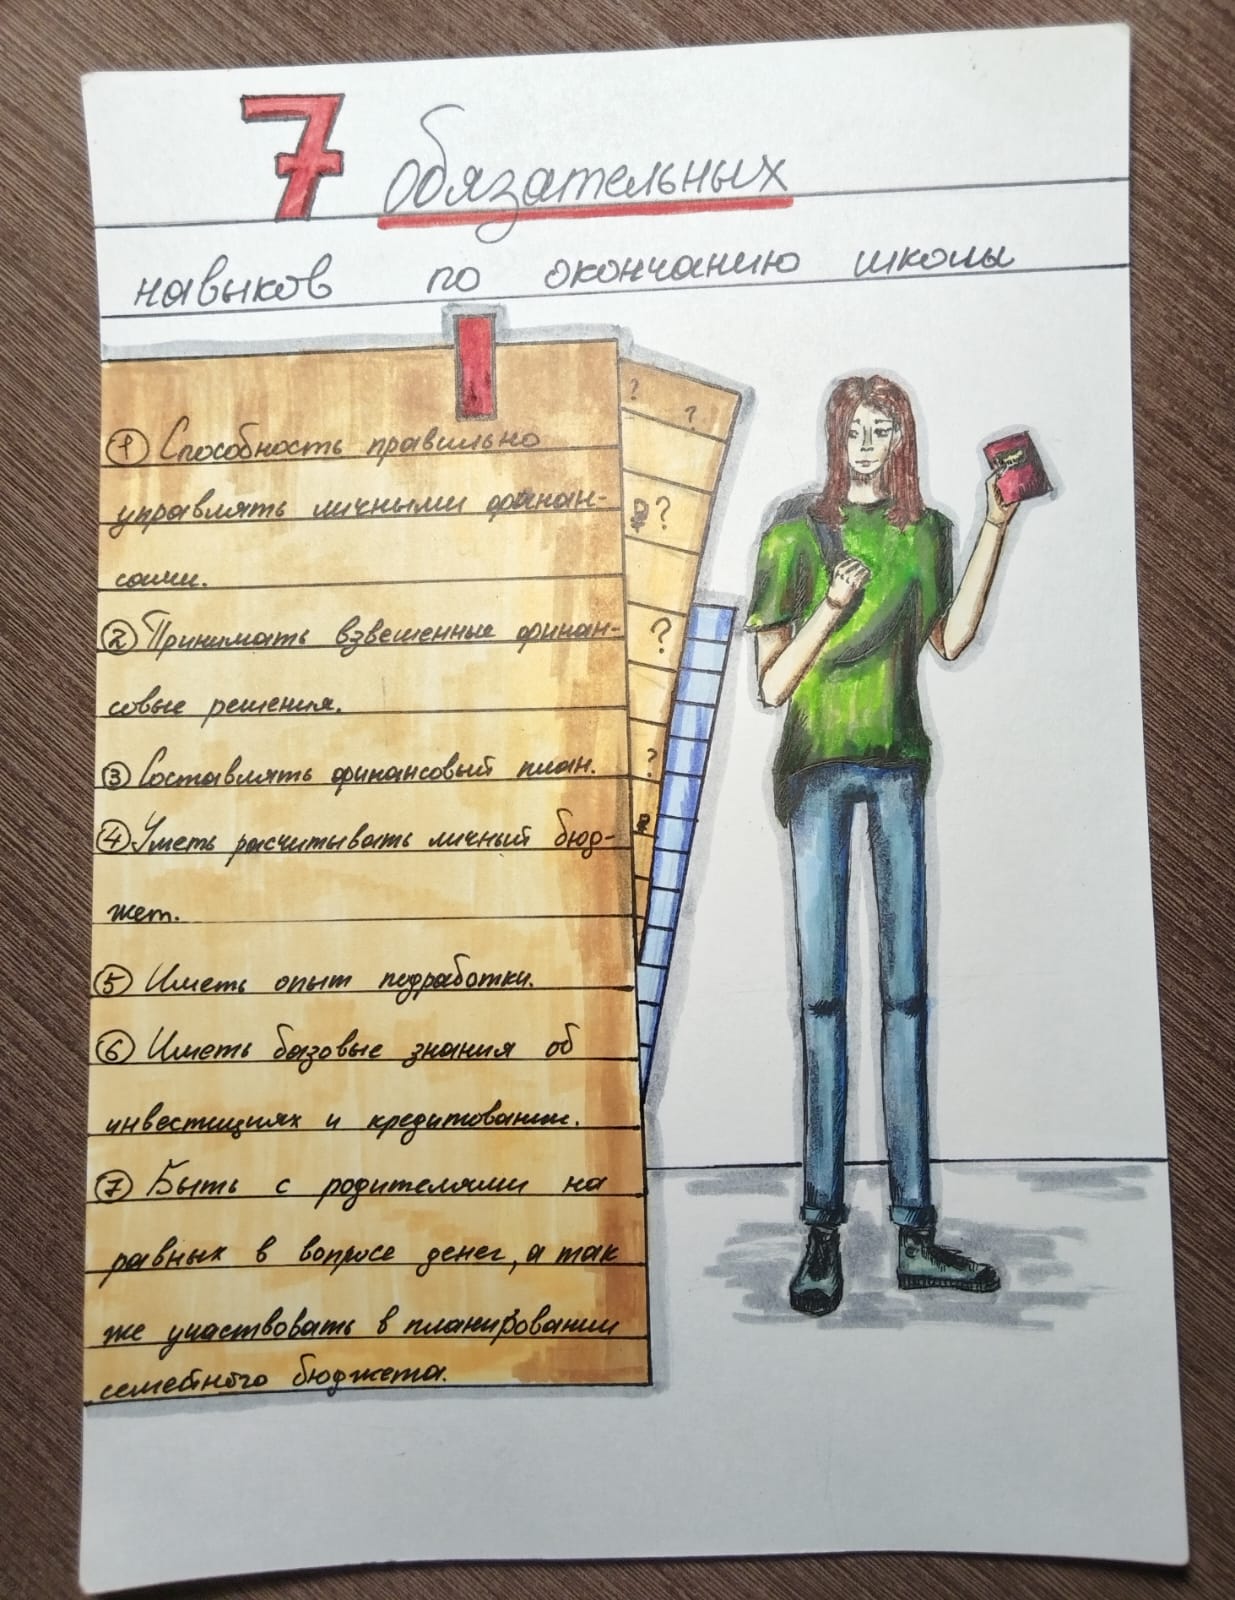 7 обязательных
навыков по окончанию школы
? ?
① Способность правильно
управлять личными финан-
сами.
₽?
② Принимать взвешенные финан-
совые решения.
?
③ Составлять финансовый план.
?
④ Уметь расчитывать личный бюд-
жет.
₽
⑤ Иметь опыт подработки.
⑥ Иметь базовые знания об
инвестициях и кредитовании.
⑦ Быть с родителями на
равных в вопросе денег, а так
же участвовать в планировании
семейного бюджета.